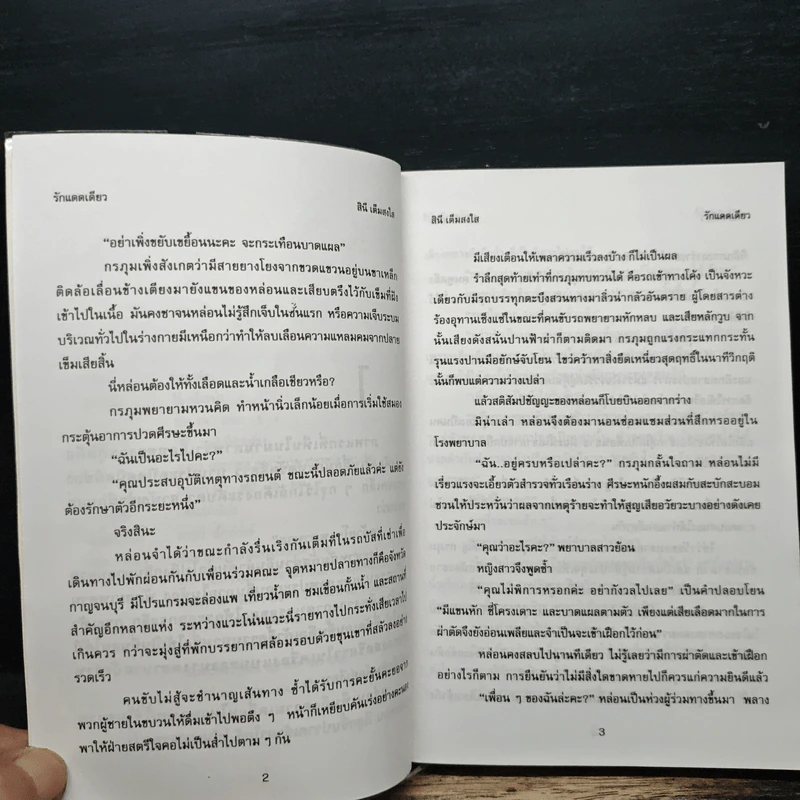 รักแดดเดียว
สินี เต็มสงใส
“อย่าเพิ่งขยับเขยื้อนนะคะ จะกระเทือนบาดแผล”
กรภุมเพิ่งสังเกตว่ามีสายยางโยงจากขวดแขวนอยู่บนขาเหล็ก
ติดล้อเลื่อนข้างเตียงมายังแขนของหล่อนและเสียบตรึงไว้กับเข็มที่ฝัง
เข้าไปในเนื้อ มันคงชาจนหล่อนไม่รู้สึกเจ็บในชั้นแรก หรือความเจ็บระบม
บริเวณทั่วไปในร่างกายมีเหนือกว่าทำให้ลบเลือนความแหลมคมจากปลาย
เข็มเสียสิ้น
นี่หล่อนต้องให้ทั้งเลือดและน้ำเกลือเชียวหรือ?
กรภุมพยายามหวนคิด ทำหน้านิ่วเล็กน้อยเมื่อการเริ่มใช้สมอง
กระตุ้นอาการปวดศีรษะขึ้นมา
“ฉันเป็นอะไรไปคะ?”
“คุณประสบอุบัติเหตุทางรถยนต์ ขณะนี้ปลอดภัยแล้วค่ะ แต่ยัง
ต้องรักษาตัวอีกระยะหนึ่ง”
จริงสินะ
หล่อนจำได้ว่าขณะกำลังรื่นเริงกันเต็มที่ในรถบัสที่เช่าเพื่อ
เดินทางไปพักผ่อนกันกับเพื่อนร่วมคณะ จุดหมายปลายทางก็คือจังหวัด
กาญจนบุรี มีโปรแกรมจะล่องแพ เที่ยวน้ำตก ชมเขื่อนกั้นน้ำ และสถานที่
สำคัญอีกหลายแห่ง ระหว่างแวะโน่นแวะนี่รายทางไปกระทั่งเสียเวลาไป
เกินควร กว่าจะมุ่งสู่ที่พักบรรยากาศล้อมรอบด้วยขุนเขาที่สลัวลงอย่าง
รวดเร็ว
คนขับไม่สู้จะชำนาญเส้นทาง ซ้ำได้รับการคะยั้นคะยอจาก
พวกผู้ชายในขบวนให้ดื่มเข้าไปพอตึง ๆ หน้าก็เหยียบคันเร่งอย่างคะนอง
พาให้ฝ่ายสตรีใจคอไม่เป็นส่ำไปตาม ๆ กัน
2
สินี เต็มสงใส
รักแดดเดียว
มีเสียงเตือนให้เพลาความเร็วลงบ้าง ก็ไม่เป็นผล
รำลึกสุดท้ายเท่าที่กรภุมทบทวนได้ คือรถเข้าทางโค้ง เป็นจังหวะ
เดียวกับมีรถบรรทุกตะบึงสวนทางมาลิ่วน่ากลัวอันตราย ผู้โดยสารต่าง
ร้องอุทานเซ็งแซ่ในขณะที่คนขับรถพยายามหักหลบ และเสียหลักวูบ จาก
นั้นเสียงดังสนั่นปานฟ้าผ่าก็ตามติดมา กรภุมถูกแรงกระแทกกระทั้น
รุนแรงปานมือยักษ์จับโยน ไขว่คว้าหาสิ่งยึดเหนี่ยวสุดฤทธิ์ในนาทีวิกฤติ
นั้นก็พบแต่ความว่างเปล่า
แล้วสติสัมปชัญญะของหล่อนก็โบยบินออกจากร่าง
มิน่าเล่า หล่อนจึงต้องมานอนซ่อมแซมส่วนที่สึกหรออยู่ใน
โรงพยาบาล
“ฉัน..อยู่ครบหรือเปล่าคะ?” กรภุมกลั้นใจถาม หล่อนไม่มี
เรี่ยวแรงจะเอี้ยวตัวสำรวจทั่วเรือนร่าง ศีรษะหนักอึ้งผสมกับสะบักสะบอม
ชวนให้ประหวั่นว่าผลจากเหตุร้ายจะทำให้สูญเสียอวัยวะบางอย่างดังเคย
ประจักษ์มา
“คุณว่าอะไรคะ?” พยาบาลสาวย้อน
หญิงสาวจึงพูดซ้ำ
“คุณไม่พิการหรอกค่ะ อย่ากังวลไปเลย” เป็นคำปลอบโยน
“มีแขนหัก ซี่โครงเดาะ และบาดแผลตามตัว เพียงแต่เสียเลือดมากในการ
ผ่าตัดจึงยังอ่อนเพลียและจำเป็นจะเข้าเฝือกไว้ก่อน”
หล่อนคงสลบไปนานทีเดียว ไม่รู้เลยว่ามีการผ่าตัดและเข้าเฝือก
อย่างไรก็ตาม การยืนยันว่าไม่มีสิ่งใดขาดหายไปก็ควรแก่ความยินดีแล้ว
“เพื่อน ๆ ของฉันล่ะคะ?” หล่อนเป็นห่วงผู้ร่วมทางขึ้นมา พลาง
3